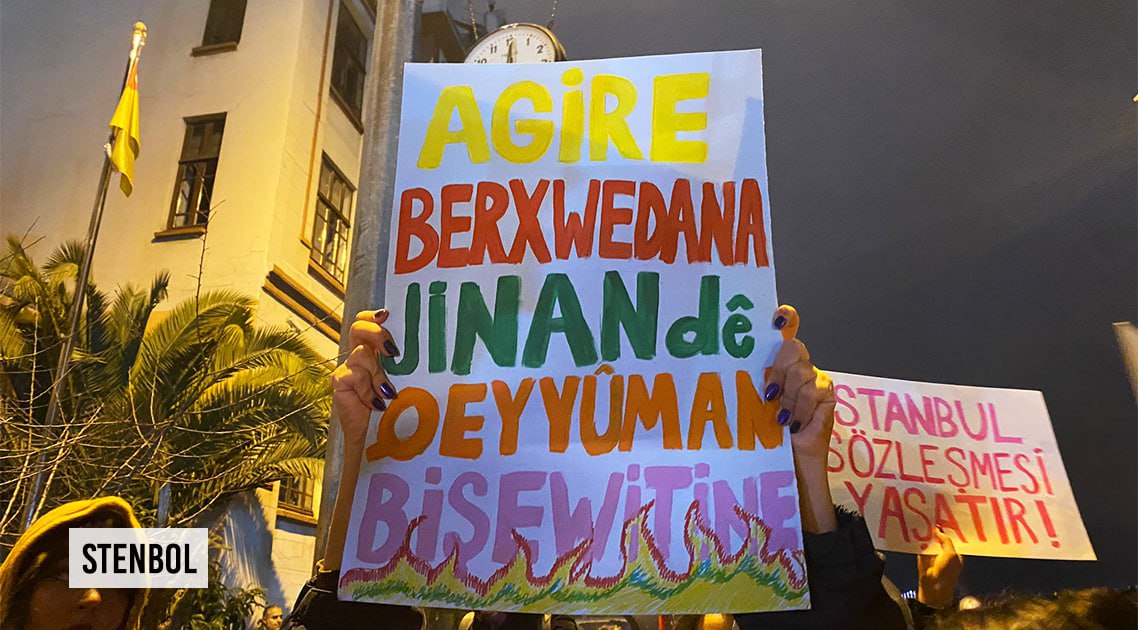 AGiRE
BERXWEDANA
JiNAN dê
QEYYÛMAN
BiŞEWiTiNE
İSTANBUL
SÖZLEŞMESİ
YAŞATIR!
STENBOL